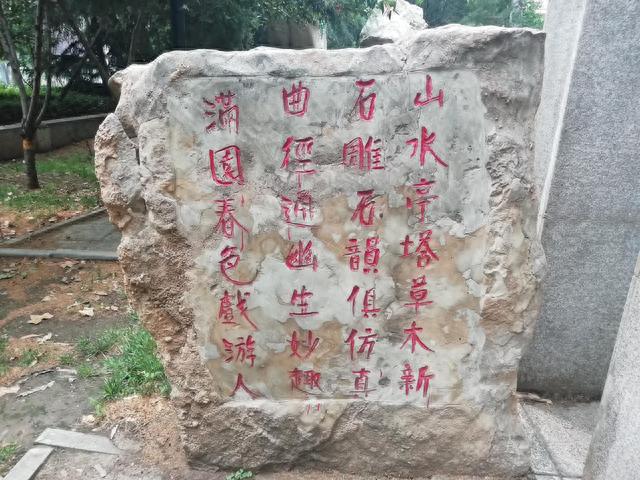 山水亭塔草木新
石雕石韻俱仿真
曲徑通幽生妙趣
滿園春色戲游人